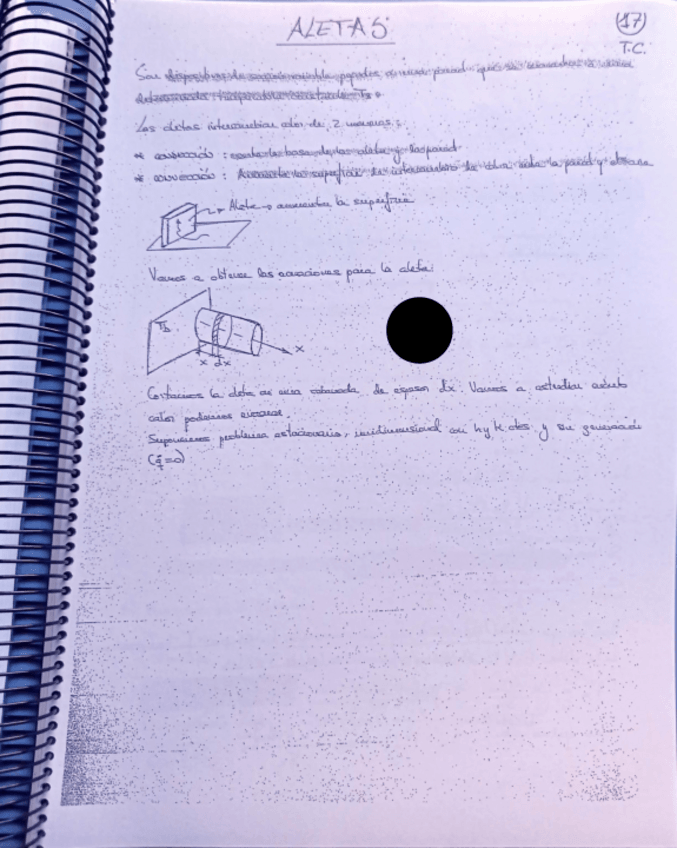 ALETAS
17
T.C.
Son dispositivos de sección variable pegados a una pared que se encuentra a
determinada temperatura Tb.
Las aletas intercambian calor de 2 maneras:
* : entre la base de la aleta y la pared
* convección : la superficie de intercambio de la pared y
Aleta → aumentar la superficie
Vamos a obtener las ecuaciones para la aleta:
Tb
x dx
x
Cortamos la aleta en una rebanada de espesor dx. Vamos a estudiar cuánto
calor podemos evacuar.
Suponemos problema estacionario, unidimensional con h y k ctes. y sin generación
(q̇=0)